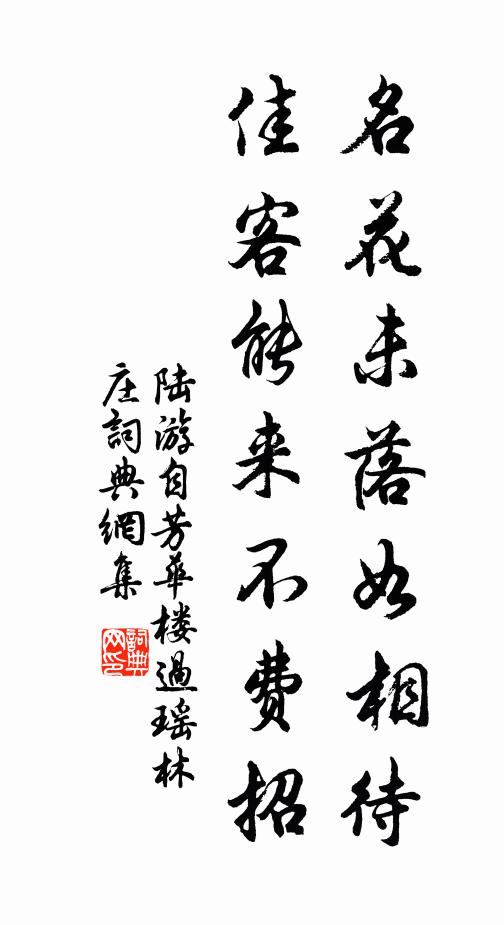 名花未落如相待
佳客能来不费招
陆游自芳华楼過瑶林
庄詞典網集
詞典
网印